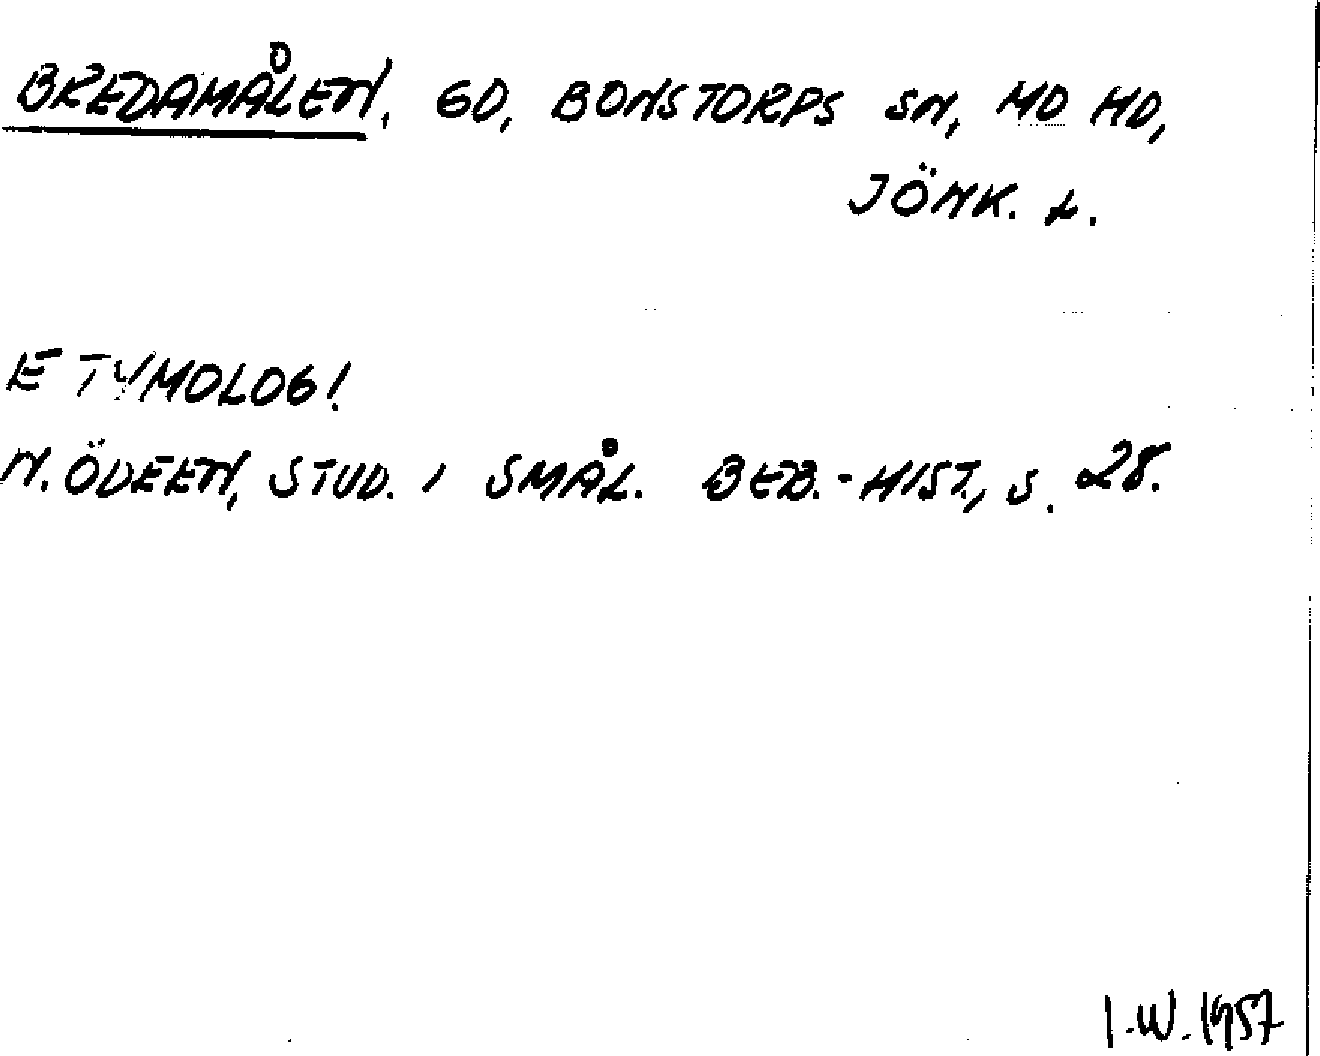 BREDAMÅLEN, GD, BONSTORPS SN, MO HD,
JÖNK. L.
ETYMOLOGI.
N. ÖDEEN, STUD. I SMÅL. BEB.-HIST., S. 28.
I.W. 1957